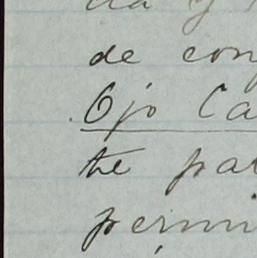 da y
de con
Ojo Ca
the pa
permi